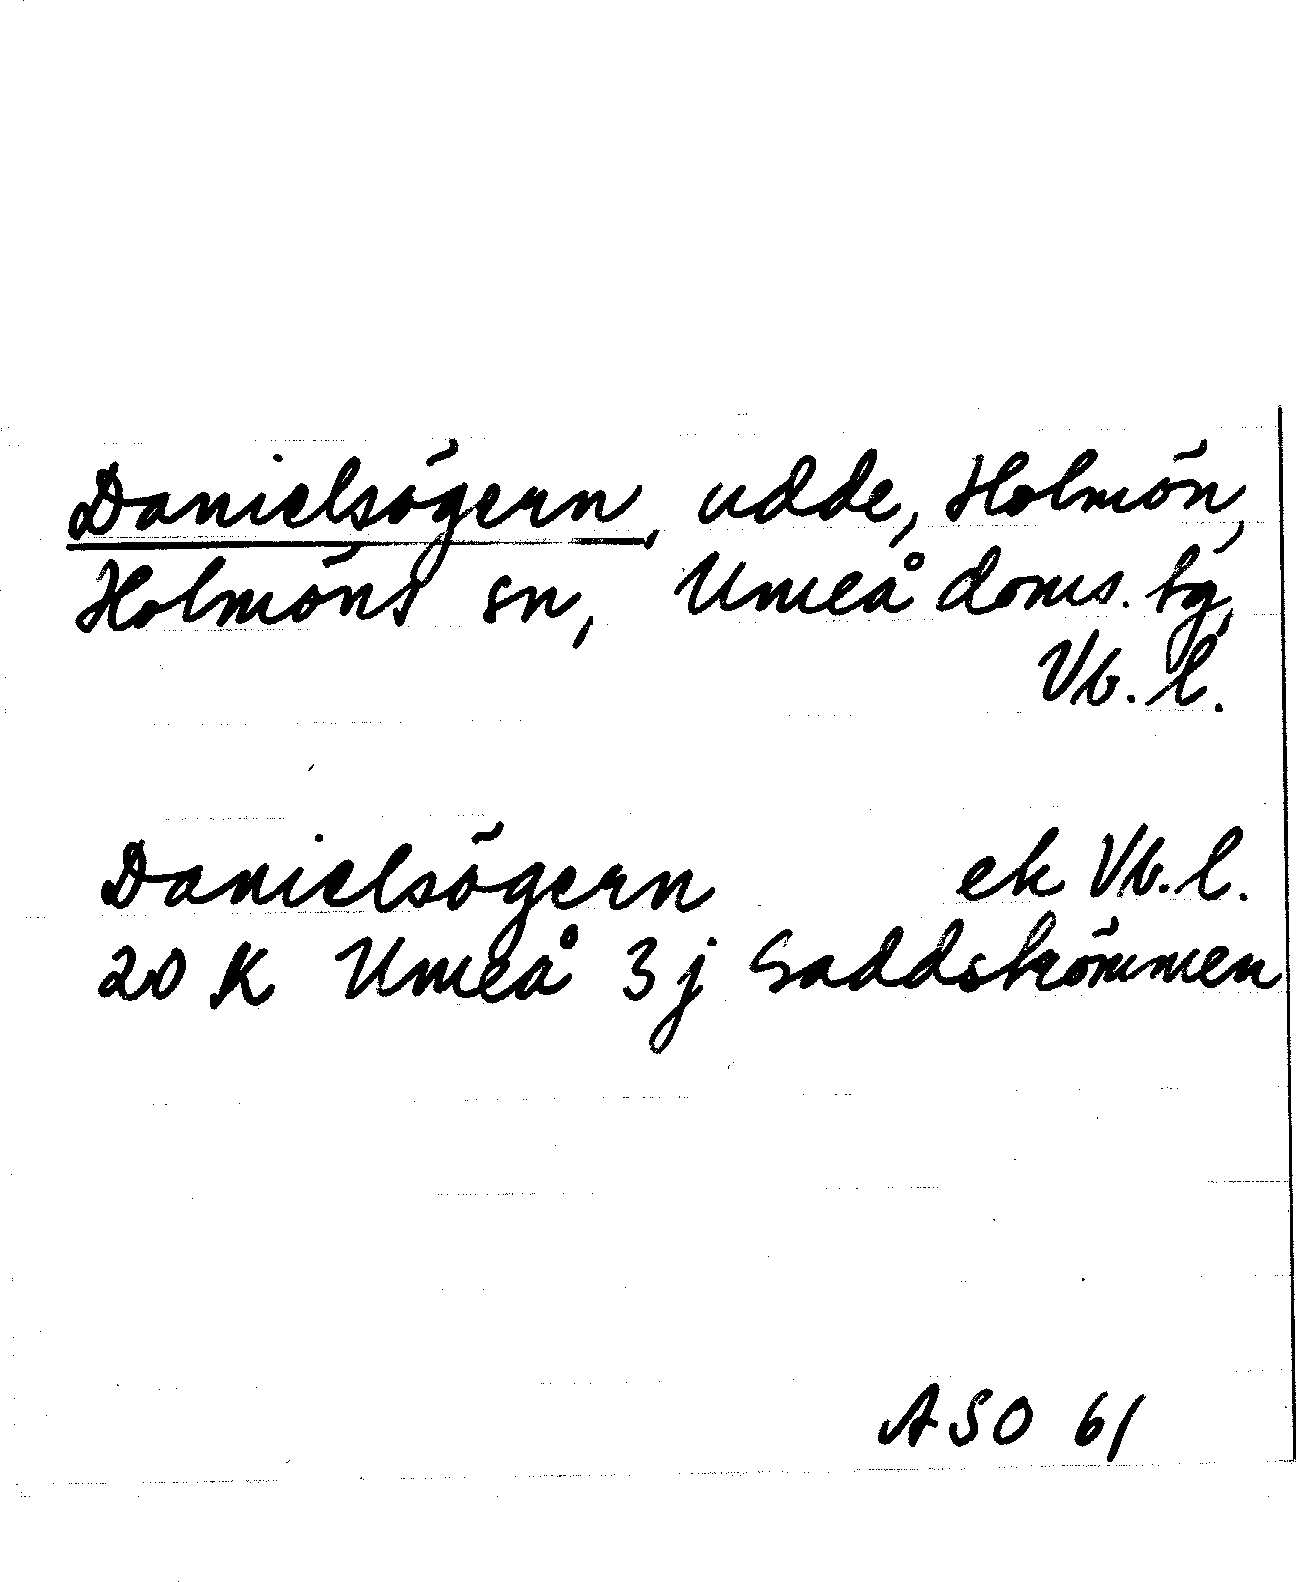 Danielsögern, udde, Holmön,
Holmöns sn, Umeå doms. tg,
Vb. l.
Danielsögern ek Vb. l.
20 K Umeå 3 j Gaddströmmen
ASO 61